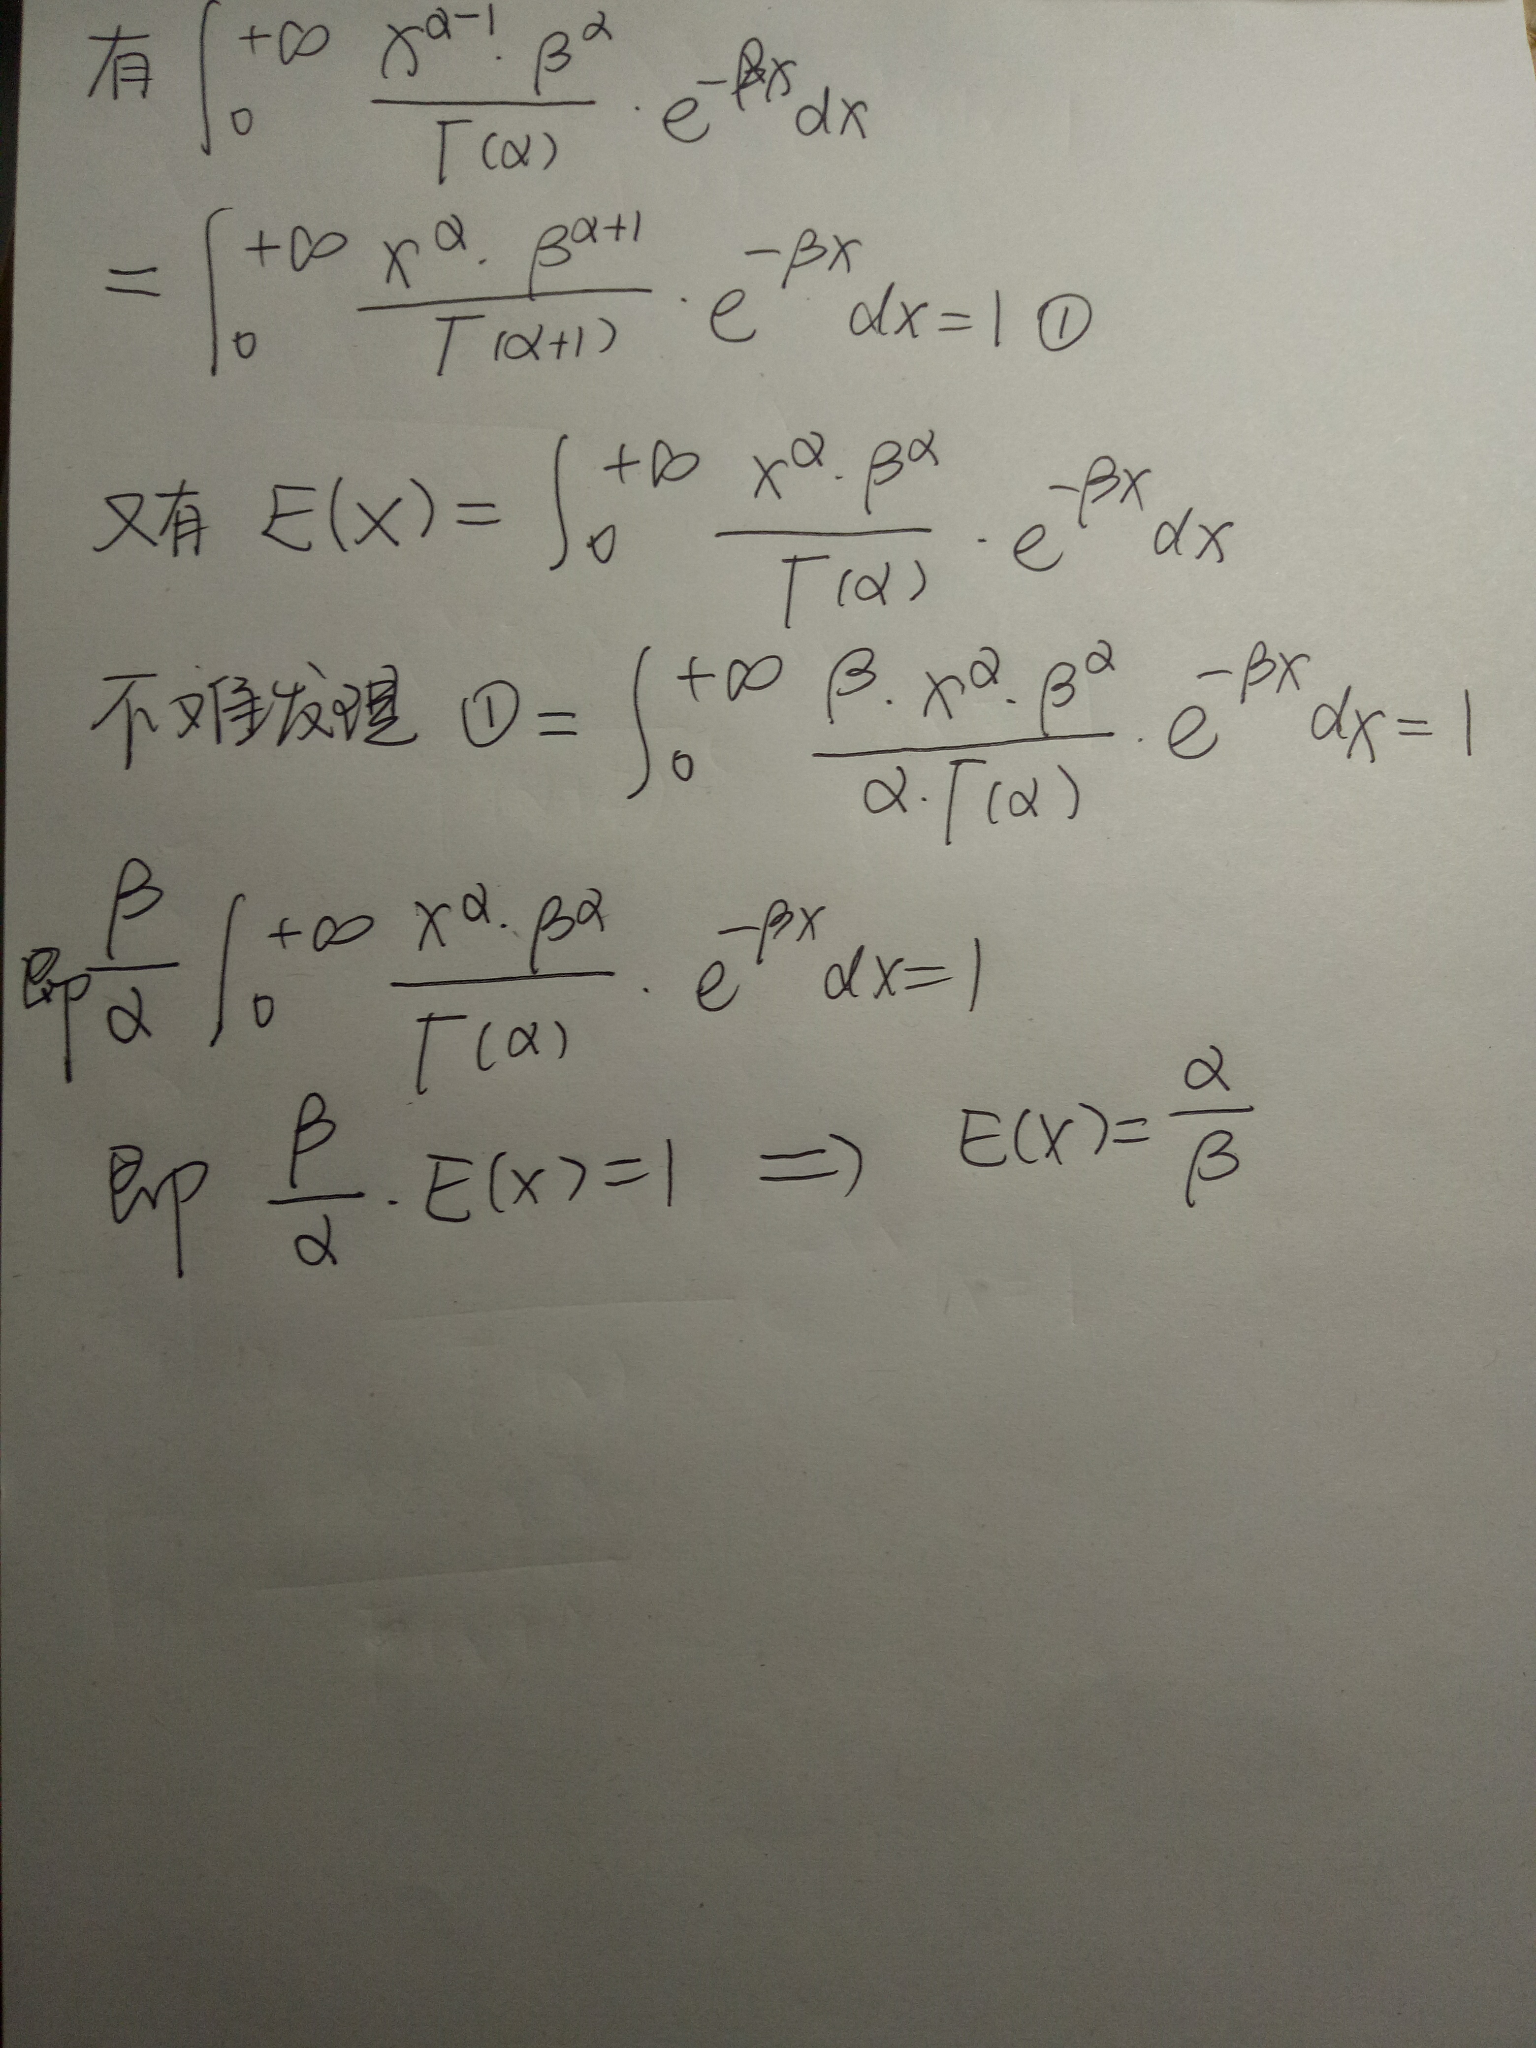 有 ∫₀^{+∞} \frac{x^{α-1}·β^α}{Γ(α)}·e^{-βx}dx
= ∫₀^{+∞} \frac{x^α·β^{α+1}}{Γ(α+1)}·e^{-βx}dx=1 ①
又有 E(X)= ∫₀^{+∞} \frac{x^α·β^α}{Γ(α)}·e^{-βx}dx
不难发现 ①= ∫₀^{+∞} \frac{β·x^α·β^α}{α·Γ(α)}·e^{-βx}dx=1
即 \frac{β}{α} ∫₀^{+∞} \frac{x^α·β^α}{Γ(α)}·e^{-βx}dx=1
即 \frac{β}{α}·E(X)=1 ⇒ E(X)=\frac{α}{β}